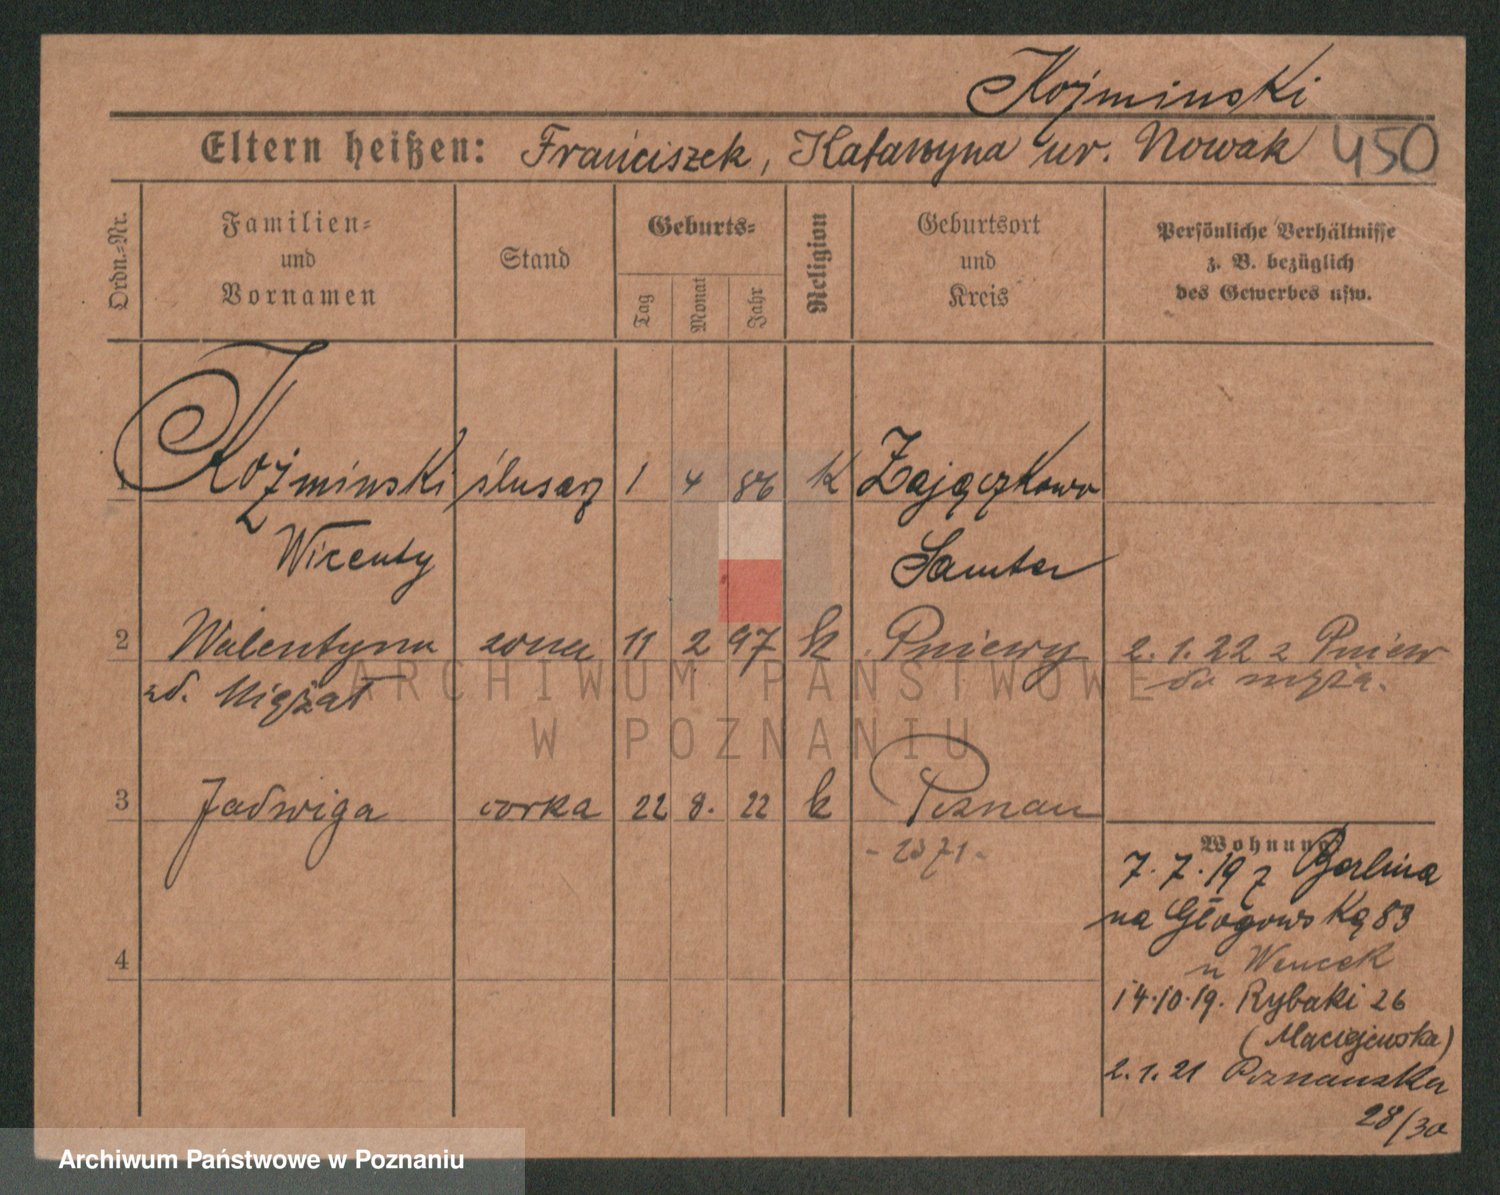 Kozminski
Eltern heißen: Franciszek, Katarzyna ur. Nowak 450
Ordn.-Nr.
Familien- und Vornamen
Stand
Geburts-
Tag
Monat
Jahr
Religion
Geburtsort und Kreis
Persönliche Verhältnisse
z. B. bezüglich
des Gewerbes usw.
1 Kozminski ślusarz 1 4 86 K Zajączkowo
Wicenty Samter
2 Walentyna zona 11 2 97 k Pniewy 2.1.22 z Pniew
zd. do męża.
3 Jadwiga corka 22 8. 22 k Poznan
Wohnung
7.7.19 z Berlina
na Głogowską 83
u Wencek
4
14.10.19. Rybaki 26
(Maciejewska)
2.1.21 Poznanska
28/30
ARCHIWUM PAŃSTWOWE
W POZNANIU
Archiwum Państwowe w Poznaniu